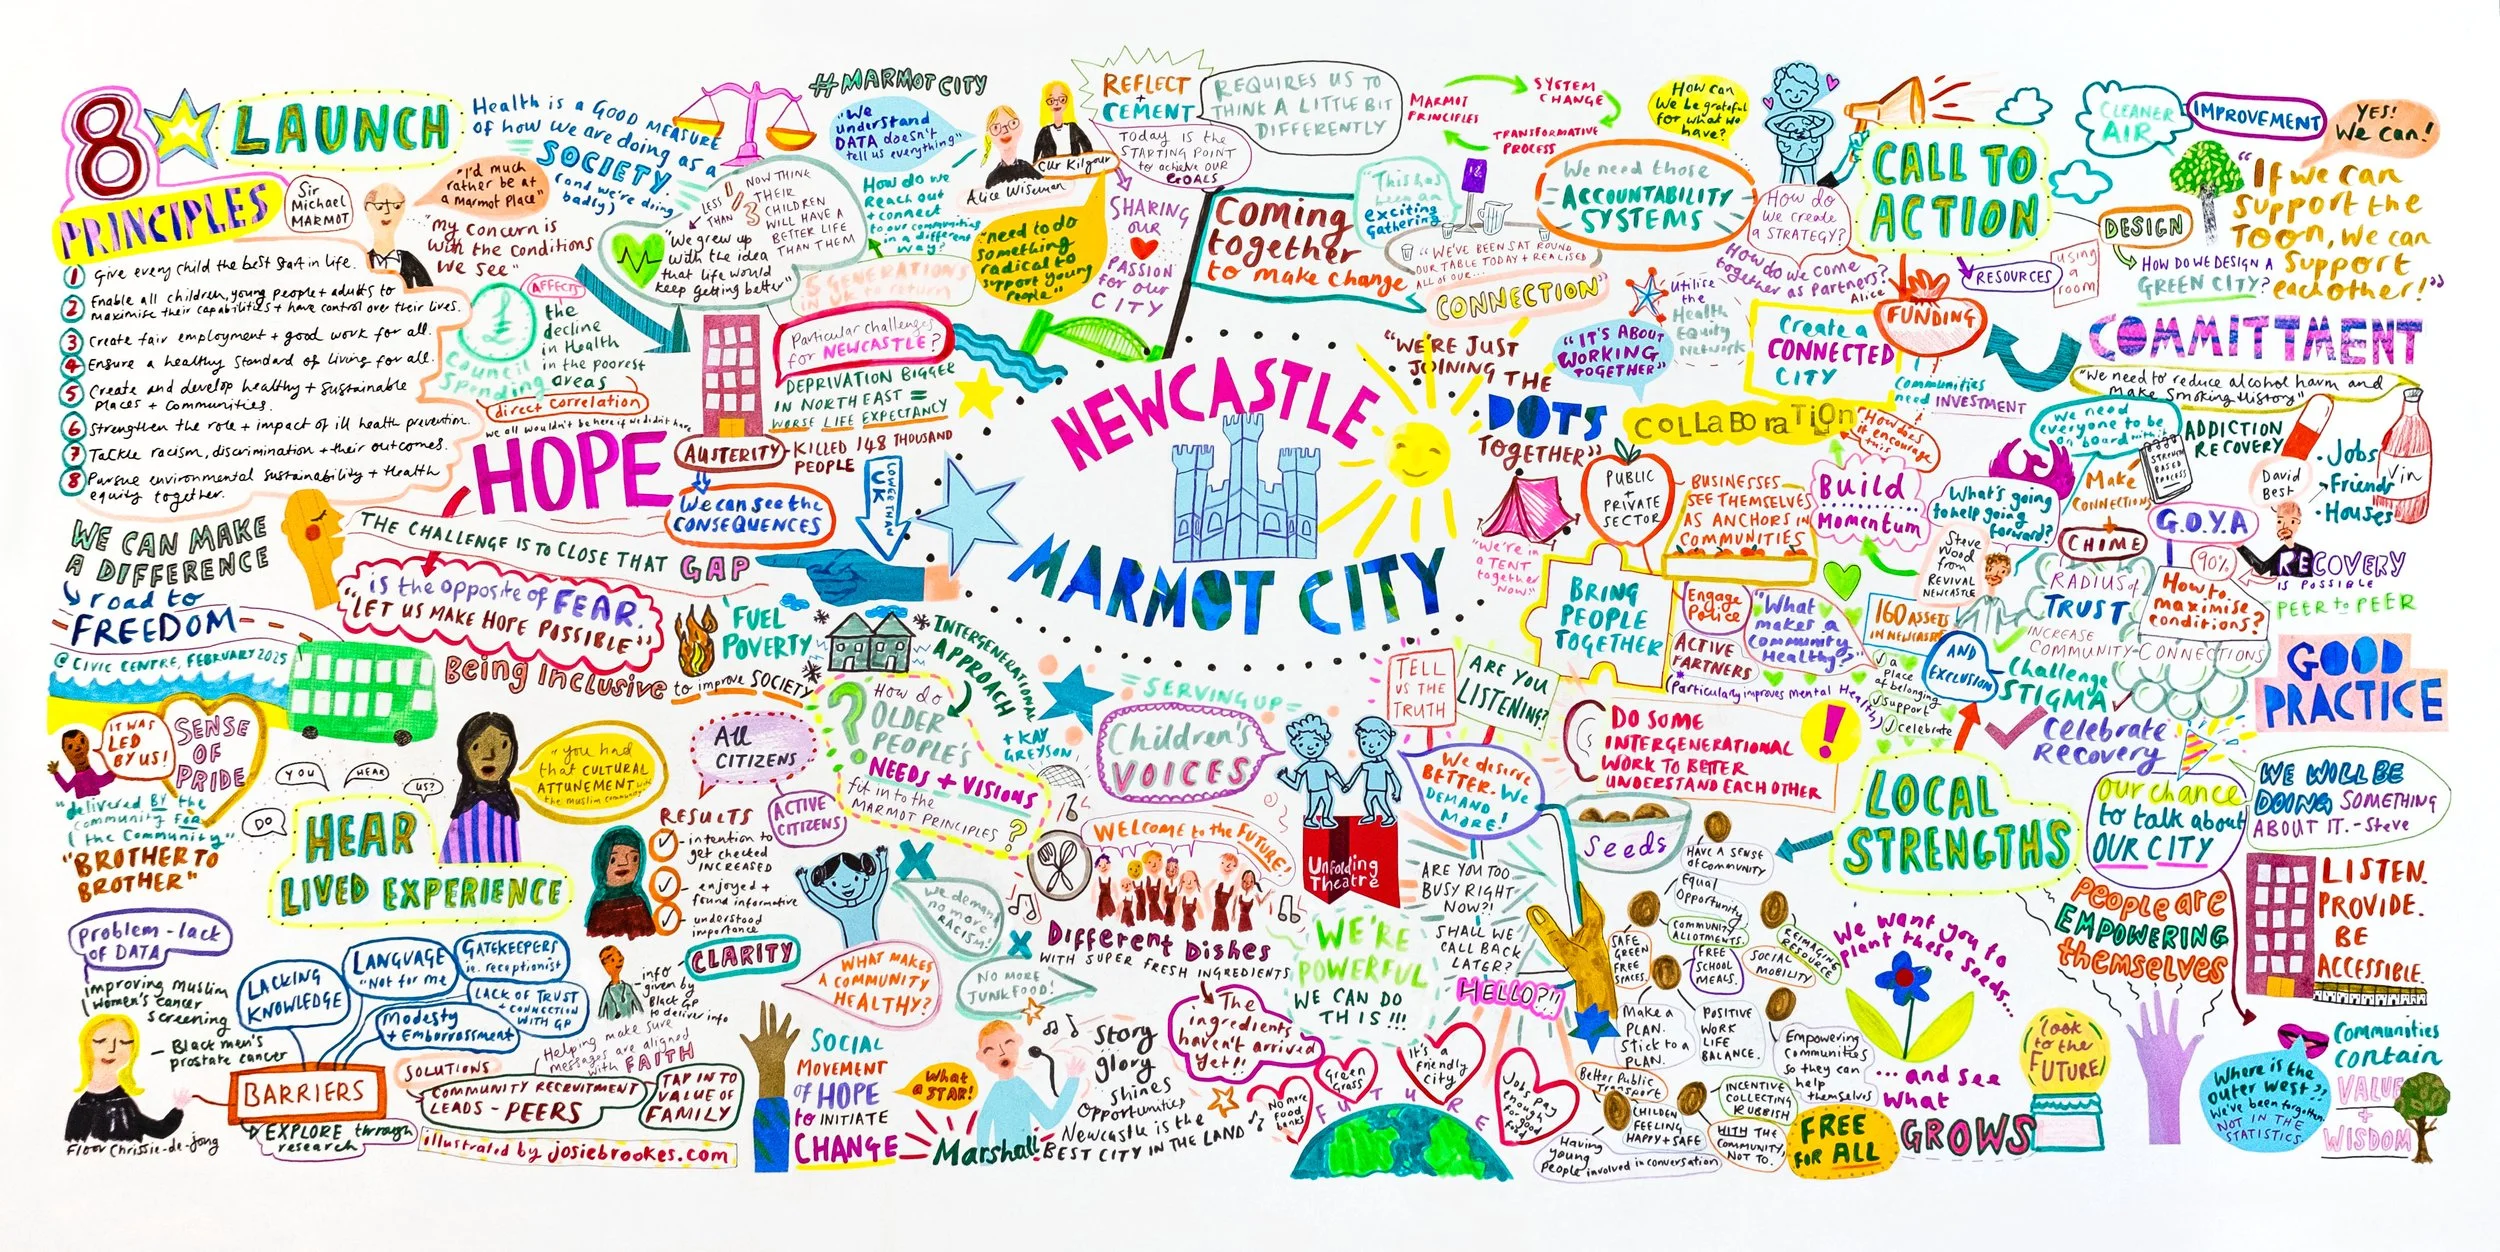 8
PRINCIPLES
LAUNCH
Sir
Michael
MARMOT
"I'd much
rather be at
a Marmot Place"
"my concern is
with the conditions
we see"
1 Give every child the best start in life.
2 Enable all children, young people + adults to
maximise their capabilities + have control over their lives.
3 Create fair employment + good work for all.
4 Ensure a healthy standard of living for all.
5 Create and develop healthy + sustainable
places + communities.
6 Strengthen the role + impact of ill health prevention.
7 Tackle racism, discrimination + their outcomes.
8 Pursue environmental sustainability + Health
equity together.
Health is a GOOD MEASURE
of how we are doing as a
SOCIETY
(and we're doing
badly)
LESS
THAN
1/3
NOW THINK
THEIR
CHILDREN
WILL HAVE A
BETTER LIFE
THAN THEM
"We grew up
with the idea
that life would
keep getting better"
5 GENERATIONS
IN UK to return
AFFECTS
£
Council
Spending
the
decline
in Health
in the poorest
areas
direct correlation
we all wouldn't be here if we didn't have
HOPE
Particular challenges
for NEWCASTLE?
DEPRIVATION BIGGER
IN NORTH EAST =
WORSE LIFE EXPECTANCY
AUSTERITY - KILLED 148 THOUSAND
PEOPLE
We can see the
CONSEQUENCES
LOWER THAN
UK
#MARMOT CITY
"We
understand
DATA doesn't
tell us everything"
How do we
Reach out
+ connect
to our communities
in a different
way?
Cllr Kilgour
Alice Wiseman
"need to do
something
radical to
support young
people"
REFLECT
+
CEMENT
Today is the
STARTING POINT
to achieve OUR
GOALS
REQUIRES US TO
THINK A LITTLE BIT
DIFFERENTLY
SHARING
OUR
PASSION
for our
CITY
MARMOT
PRINCIPLES
SYSTEM
CHANGE
TRANSFORMATIVE
PROCESS
Coming
together
to make change
"This has
been an
exciting
Gathering"
"WE'VE BEEN SAT ROUND
OUR TABLE TODAY + REALISED
ALL OF OUR...
CONNECTION"
How can
we be grateful
for what we
have?
We need those
ACCOUNTABILITY
SYSTEMS
How do
we create
a STRATEGY?
How do we come
together as partners?
Alice
CALL TO
ACTION
Utilise
the
Health
Equity
Network
"IT'S ABOUT
WORKING
TOGETHER"
Create a
CONNECTED
CITY
FUNDING
communities
need INVESTMENT
RESOURCES
using
a
room
CLEANER
AIR
IMPROVEMENT
YES!
We can!
DESIGN
HOW DO WE DESIGN A
GREEN CITY?
"If we can
support the
TOON, we can
support
each other!"
COMMITTMENT
"We need to reduce alcohol harm and
make smoking history"
NEWCASTLE
MARMOT CITY
"WE'RE JUST
JOINING THE
DOTS
TOGETHER"
COLLABORATION
"How does
it encourage
this"
"We're in
a TENT
together
now"
PUBLIC
+
PRIVATE
SECTOR
BUSINESSES
SEE THEMSELVES
AS ANCHORS IN
COMMUNITIES
Build
Momentum
BRING
PEOPLE
TOGETHER
Engage
Police
ACTIVE
PARTNERS
"What
makes a
community
Healthy?"
*Particularly improves mental Health
we need
everyone to be
on board with it
What's going
to help going
forward?
Steve
Wood
from
REVIVAL
NEWCASTLE
160 ASSETS
IN NEWCASTLE
a
place
of belonging
support
celebrate
AND
EXCLUSION
Challenge
STIGMA
Celebrate
Recovery
Make
CONNECTIONS
+
CHIME
STRENGTH
BASED
PROCESS
ADDICTION
RECOVERY
David
Best
Jobs
Friends
Houses
G.O.Y.A
90%
RECOVERY
IS POSSIBLE
PEER to PEER
RADIUS of
TRUST
How to
maximise
conditions?
INCREASE
COMMUNITY-CONNECTIONS
GOOD
PRACTICE
WE CAN MAKE
A DIFFERENCE
road to
FREEDOM
@ CIVIC CENTRE, FEBRUARY 2025
THE CHALLENGE IS TO CLOSE THAT GAP
is the opposite of FEAR.
"LET US MAKE HOPE POSSIBLE"
Being Inclusive to improve SOCIETY
FUEL
POVERTY
INTERGENERATIONAL
APPROACH
+ KAY
GREYSON
? How do
OLDER
PEOPLE'S
NEEDS + VISIONS
fit into the
MARMOT PRINCIPLES?
IT WAS
LED
BY US!
SENSE
OF
PRIDE
"delivered BY the
community FOR
the community"
"BROTHER TO
BROTHER"
DO
YOU
HEAR
US?
HEAR
LIVED EXPERIENCE
"You had
that CULTURAL
ATTUNEMENT with
the muslim community"
All
CITIZENS
ACTIVE
CITIZENS
RESULTS
- intention to
get checked
INCREASED
- enjoyed +
found informative
- understood
importance
CLARITY
info
given by
Black GP
to deliver info
Helping make sure
messages are aligned
with FAITH
Problem - lack
of DATA
improving muslim
women's cancer
screening
- Black men's
prostate cancer
LACKING
KNOWLEDGE
LANGUAGE
"Not for me
GATEKEEPERS
ie. receptionist
LACK OF TRUST
+ CONNECTION
WITH GP
Modesty
+ Embarrassment
BARRIERS
EXPLORE through
research
SOLUTIONS
COMMUNITY RECRUITMENT
LEADS - PEERS
TAP INTO
VALUE OF
FAMILY
Floor Chrissie-de-jong
illustrated by josiebrookes.com
SOCIAL
MOVEMENT
of HOPE
to INITIATE
CHANGE
WHAT MAKES
A COMMUNITY
HEALTHY?
We demand
no more
RACISM!
NO MORE
JUNK FOOD!
What
a STAR!
Marshall
Story
glory
shines
Opportunities
Newcastle is the
BEST CITY IN THE LAND
=SERVING UP=
Children's
VOICES
WELCOME to the FUTURE!
Different Dishes
WITH SUPER FRESH INGREDIENTS
The
ingredients
haven't arrived
yet!!
Unfolding
Theatre
TELL
US THE
TRUTH
ARE YOU
LISTENING?
We deserve
BETTER. We
DEMAND
MORE!
WE'RE
POWERFUL
WE CAN DO
THIS!!!
ARE YOU TOO
BUSY RIGHT
NOW?!
SHALL WE
CALL BACK
LATER?
HELLO?!!
No more
food
banks
Green
Grass
It's a
friendly
city
Jobs pay
enough
for good
food
FUTURE
DO SOME
INTERGENERATIONAL
WORK TO BETTER
UNDERSTAND EACH OTHER
!
Seeds
HAVE A SENSE
of COMMUNITY
Equal
Opportunity
COMMUNITY
ALLOTMENTS.
SAFE
GREEN
FREE
SPACES.
FREE
SCHOOL
MEALS.
SOCIAL
MOBILITY
REIMAGING
RESOURCE
Make a
PLAN.
Stick to a
PLAN.
POSITIVE
WORK
LIFE
BALANCE.
Empowering
communities
so they can
help
themselves
Better Public
Transport
CHILDREN
FEELING
HAPPY + SAFE
INCENTIVE
COLLECTING
RUBBISH
WITH THE
COMMUNITY,
NOT TO.
Having
young
people involved in conversation
FREE
FOR ALL
LOCAL
STRENGTHS
We want you to
plant these seeds...
...and see
what
GROWS
PEOPLE ARE
EMPOWERING
themselves
Our chance
to talk about
OUR CITY
WE WILL BE
DOING SOMETHING
ABOUT IT. - Steve
LISTEN.
PROVIDE.
BE
ACCESSIBLE.
look
to the
FUTURE
Where is the
outer west??
We've been forgotten
NOT IN THE
STATISTICS.
Communities
contain
VALUE
+
WISDOM